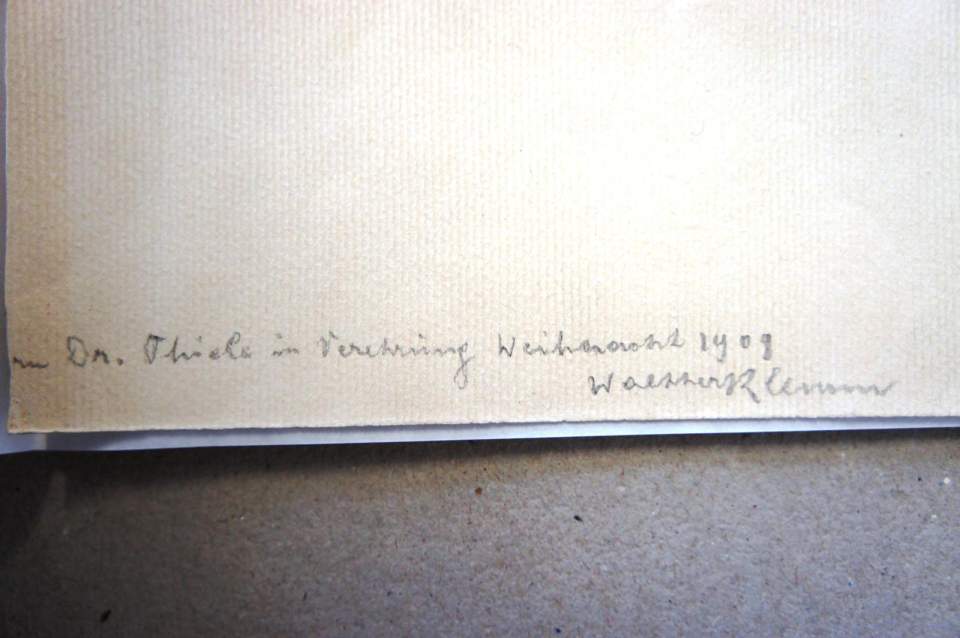 Dr. Thiele in Verehrung Weihnacht 1909
Walther Klemm